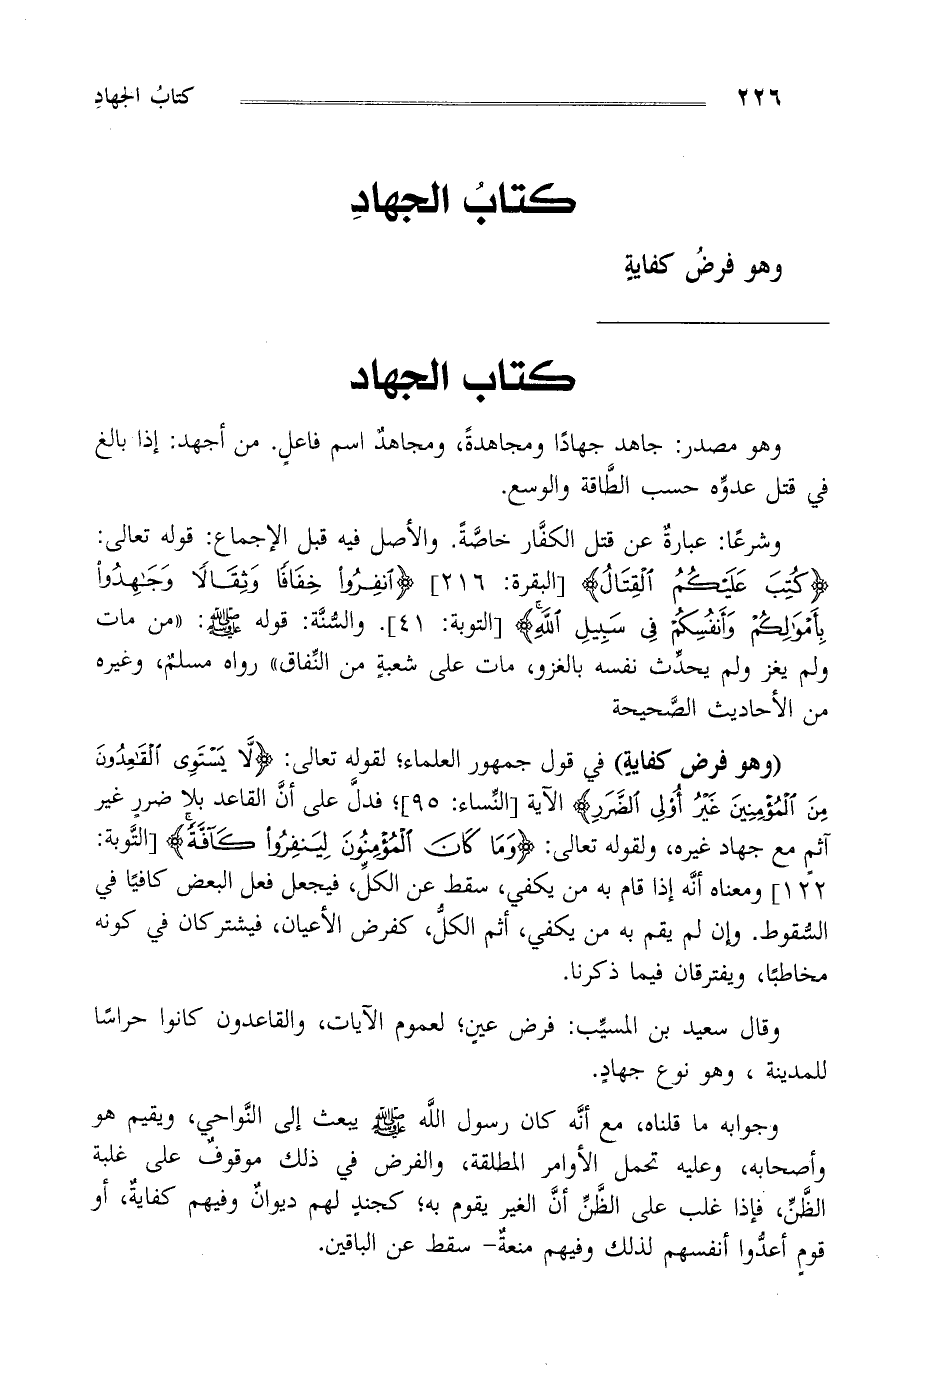 ٢٢٦ كتابُ الجهادِ
كتابُ الجهادِ
وهو فرضُ كفايةٍ
كتاب الجهاد
وهو مصدر: جاهد جهادًا ومجاهدةً، ومجاهدٌ اسم فاعلٍ. من أجهد: إذا بالغ
في قتل عدوِّه حسب الطَّاقة والوسع.
وشرعًا: عبارةٌ عن قتل الكفَّار خاصَّةً. والأصل فيه قبل الإجماع: قوله تعالى:
﴿كُتِبَ عَلَيْكُمُ ٱلْقِتَالُ﴾ [البقرة: ٢١٦] ﴿ٱنفِرُواْ خِفَافًا وَثِقَالًا وَجَٰهِدُواْ
بِأَمْوَٰلِكُمْ وَأَنفُسِكُمْ فِى سَبِيلِ ٱللَّهِۚ﴾ [التوبة: ٤١]. والسُّنَّة: قوله ﷺ: «من مات
ولم يغز ولم يحدِّث نفسه بالغزو، مات على شعبةٍ من النِّفاق» رواه مسلمٌ، وغيره
من الأحاديث الصَّحيحة
(وهو فرض كفايةٍ) في قول جمهور العلماء؛ لقوله تعالى: ﴿لَّا يَسْتَوِى ٱلْقَٰعِدُونَ
مِنَ ٱلْمُؤْمِنِينَ غَيْرُ أُوْلِى ٱلضَّرَرِ﴾ الآية [النِّساء: ٩٥]؛ فدلَّ على أنَّ القاعد بلا ضررٍ غير
آثمٍ مع جهاد غيره، ولقوله تعالى: ﴿وَمَا كَانَ ٱلْمُؤْمِنُونَ لِيَنفِرُواْ كَآفَّةًۚ﴾ [التَّوبة:
١٢٢] ومعناه أنَّه إذا قام به من يكفي، سقط عن الكلِّ، فيجعل فعل البعض كافيًا في
السُّقوط. وإن لم يقم به من يكفي، أثم الكلُّ، كفرض الأعيان، فيشتركان في كونه
مخاطبًا، ويفترقان فيما ذكرنا.
وقال سعيد بن المسيِّب: فرض عينٍ؛ لعموم الآيات، والقاعدون كانوا حراسًا
للمدينة ، وهو نوع جهادٍ.
وجوابه ما قلناه، مع أنَّه كان رسول اللَّه ﷺ يبعث إلى النَّواحي، ويقيم هو
وأصحابه، وعليه تحمل الأوامر المطلقة، والفرض في ذلك موقوفٌ على غلبة
الظَّنِّ، فإذا غلب على الظَّنِّ أنَّ الغير يقوم به؛ كجندٍ لهم ديوانٌ وفيهم كفايةٌ، أو
قومٍ أعدُّوا أنفسهم لذلك وفيهم منعةٌ- سقط عن الباقين.